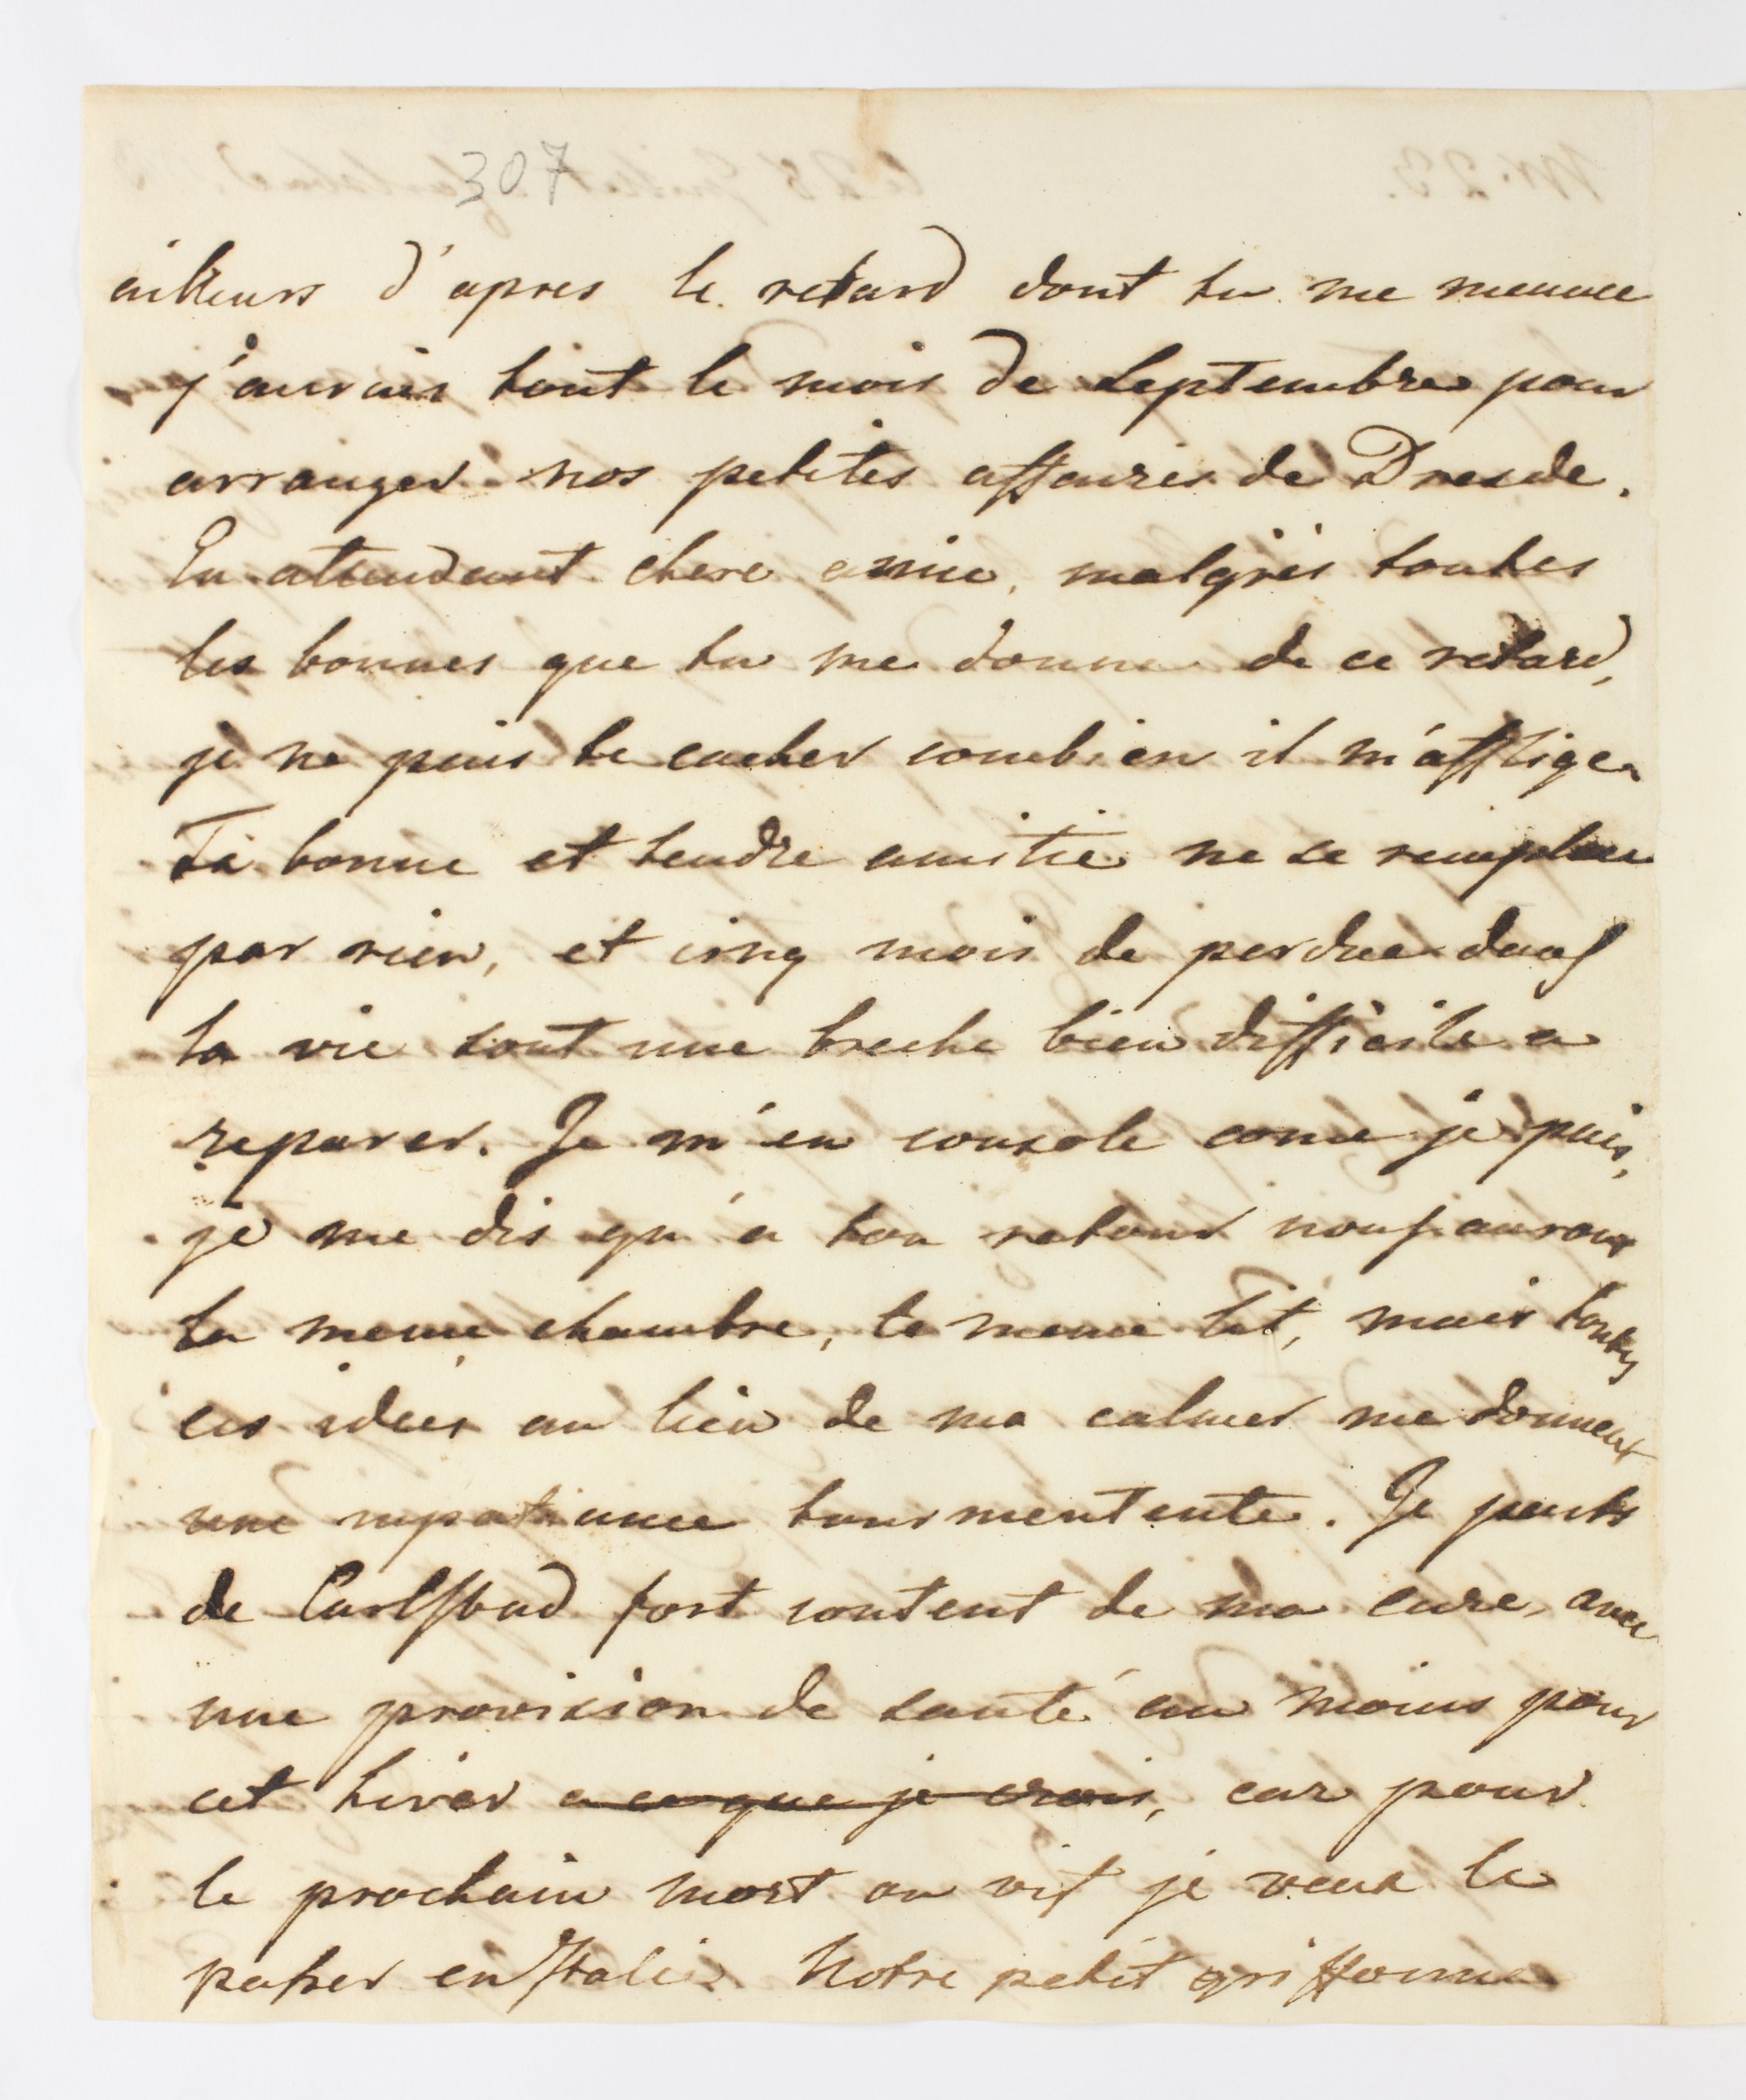 307
ailleurs d'apres le retard dont tu me menace
j'aurais tout le mois de Septembre pour
arranger nos petites affaires de Dresde.
En attendant chere amie, malgrès toutes
les bonnes que tu me donne de ce retard,
je ne puis te cacher combien il m'afflige.
Ta bonne et tendre amitie ne se remplace
par rien, et cinq mois de perdue dans
la vie sont une breche bien difficile a
reparer. Je m'en console come je puis,
je me dis qu'a ton retour nous aurons
la meme chambre, le meme lit, mais toutes
ces idées au lieu de me calmer me donnent
une impatiance tourmentente. Je parts
de Carlsbad fort content de ma cure, avec
une provision de santé au moins pour
cet hiver a ce que je crois, car pour
le prochain mort ou vif je veux le
passer en Italie. Notre petit griffonne